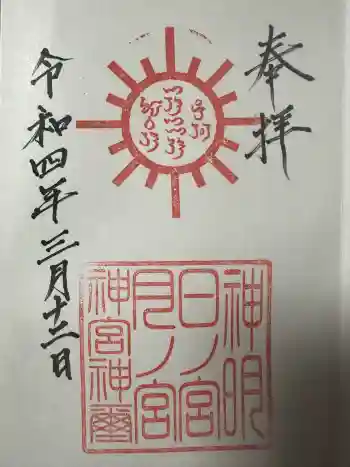 奉拝
神明
日ノ宮
月ノ宮
神宮神璽
令和四年三月十二日